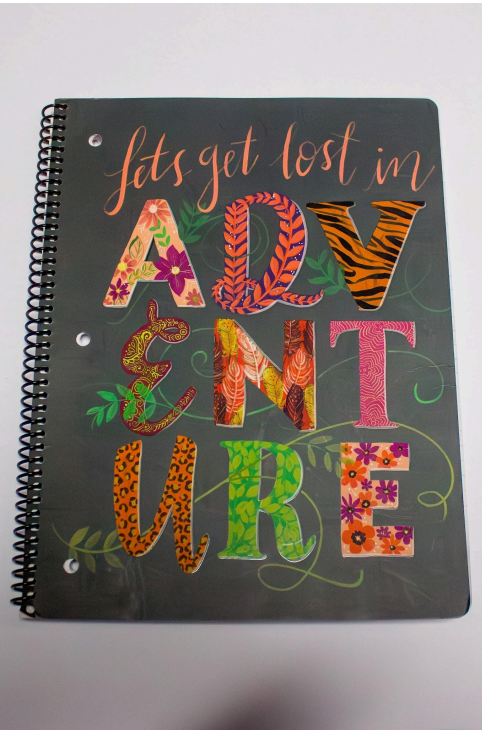 lets get lost in
ADV
ENT
URE